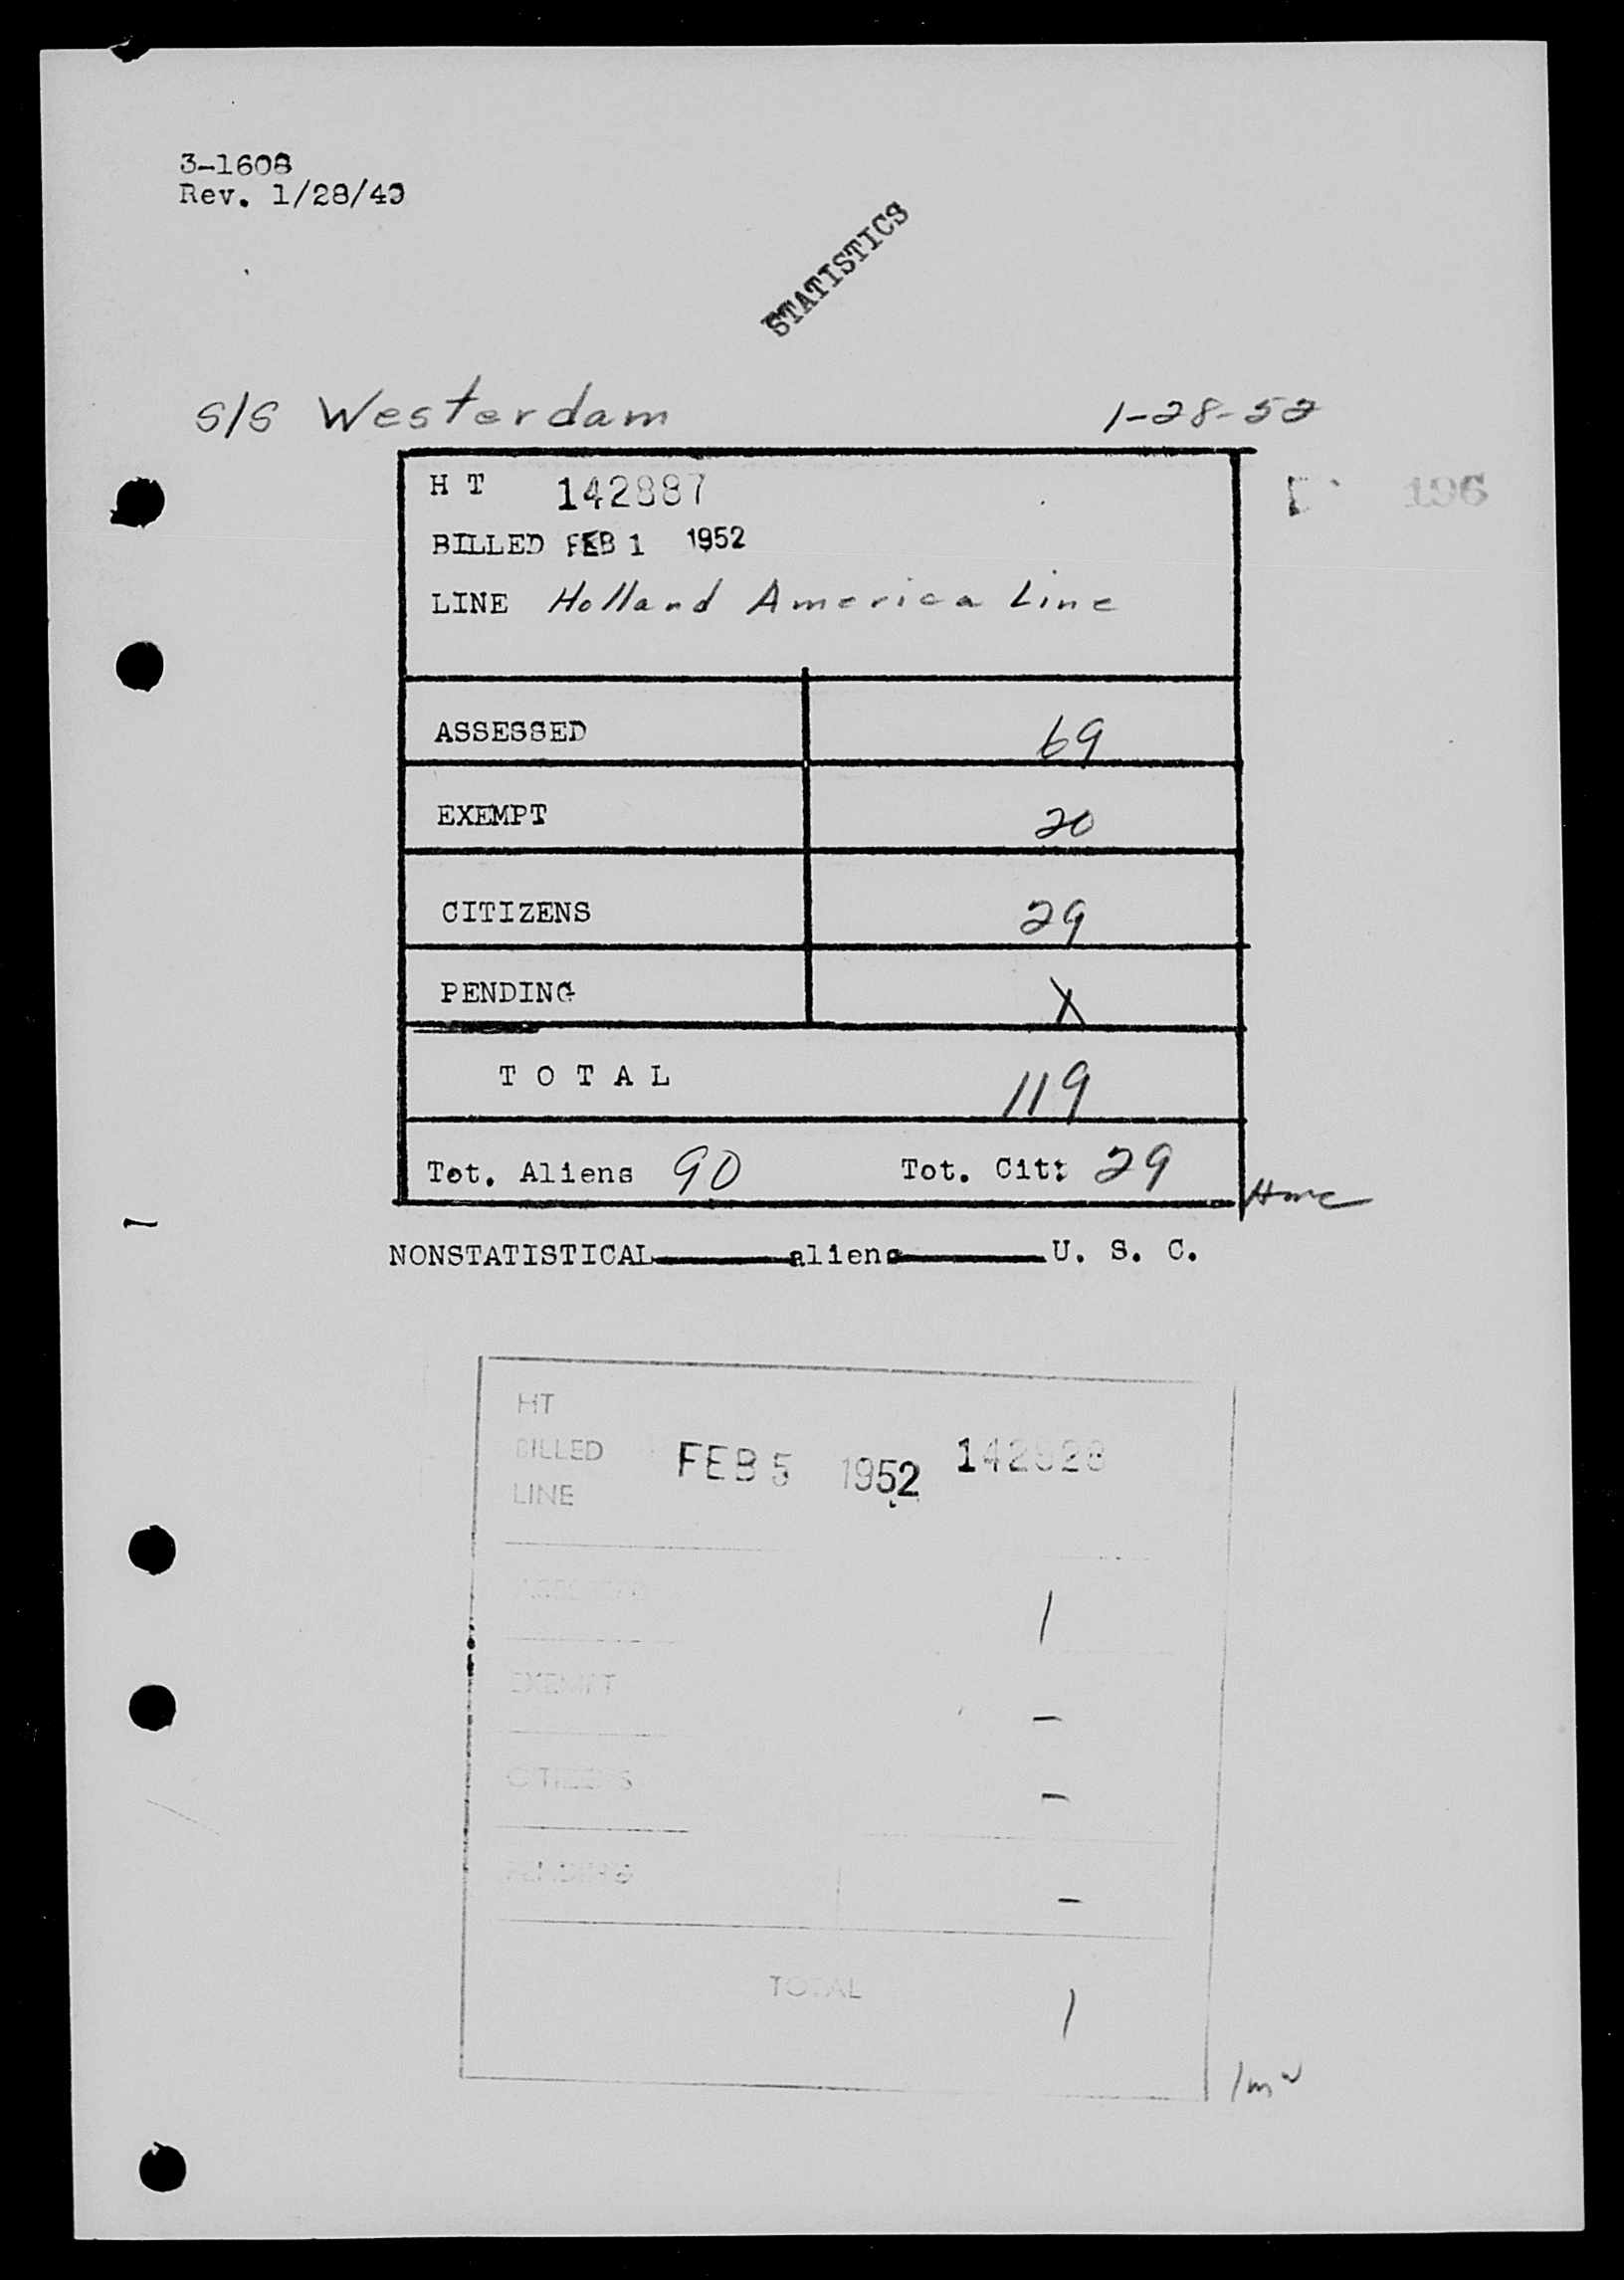 3-1608
Rev. 1/28/49
STATISTICS
S/S Westerdam 1-28-52
H T 142887
196
BILLED FEB 1 1952
LINE Holland America Line
ASSESSED 69
EXEMPT 20
CITIZENS 29
PENDING X
T O T A L 119
Tot. Aliens 90 Tot. Cit: 29
NONSTATISTICAL aliens U. S. C.
HT
BILLED FEB 5 1952
LINE
1
EXEMPT –
CITIZENS –
PENDING –
TOTAL 1